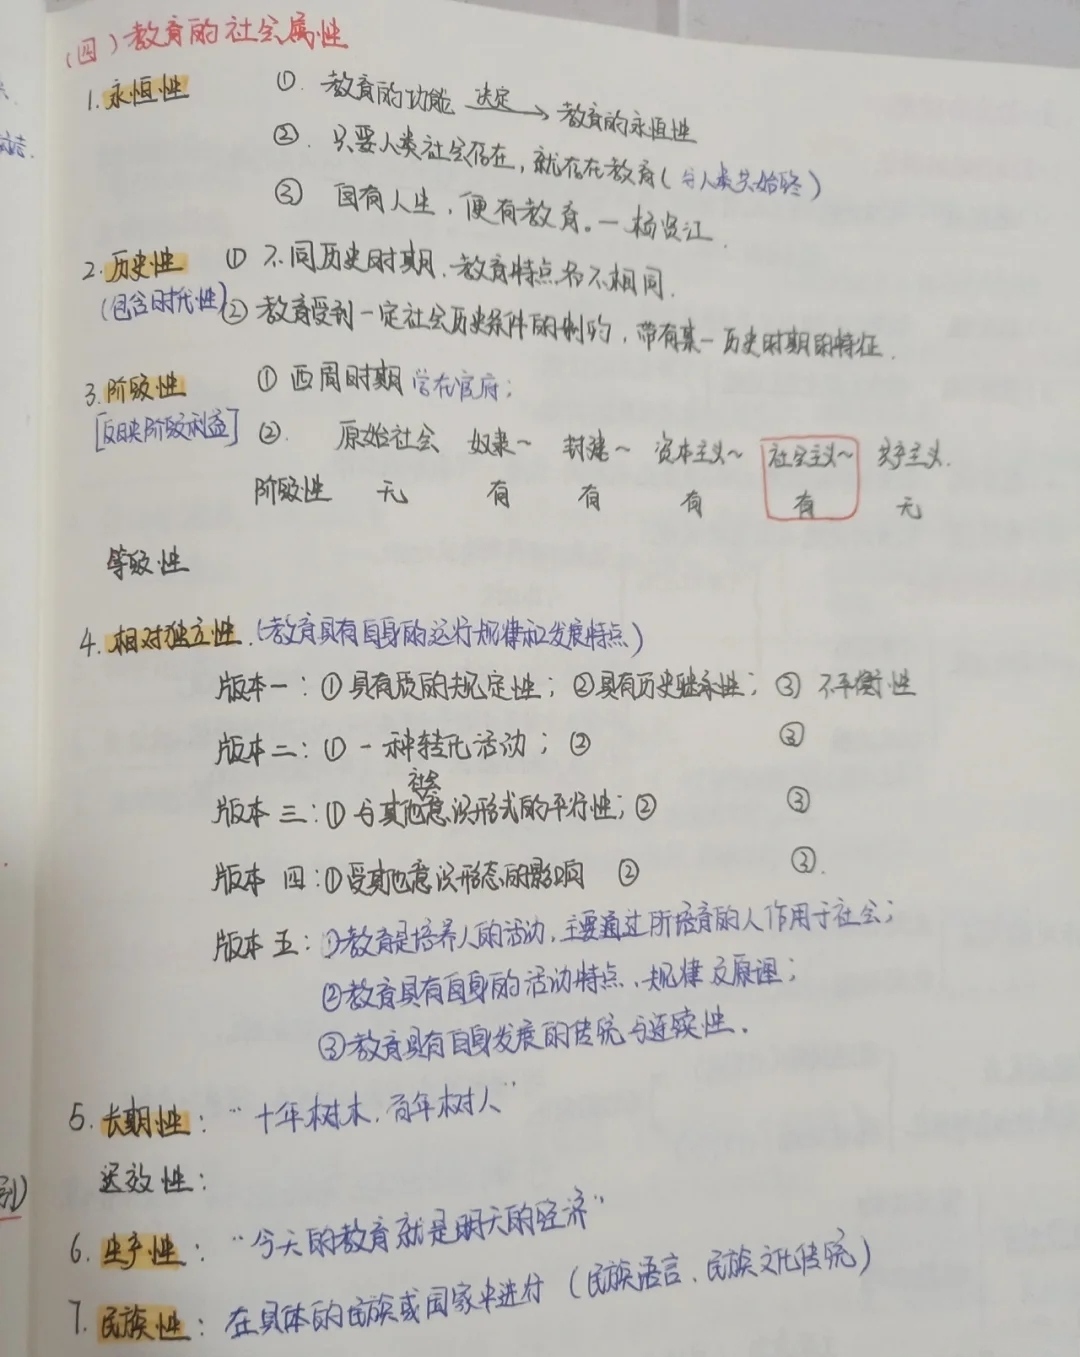 (四)教育的社会属性
1.永恒性 ①.教育的功能 决定→ 教育的永恒性
②.只要人类社会存在,就存在教育(与人类共始终)
③ 自有人生,便有教育。—杨贤江
2.历史性 ① 不同历史时期,教育特点各不相同.
(包含时代性) ② 教育受到一定社会历史条件的制约,带有某一历史时期的特征.
3.阶级性 ① 西周时期 学在官府;
[反映阶级利益] ②. 原始社会 奴隶~ 封建~ 资本主义~ 社会主义~ 共产主义.
阶级性 无 有 有 有 有 无
等级性
4.相对独立性.(教育具有自身的运行规律和发展特点)
版本一:①具有质的规定性;②具有历史继承性;③ 不平衡性
版本二:①一种转化活动;② ③
版本三:①与其他社会意识形式的平行性;② ③
版本四:①受其他意识形态的影响 ② ③.
版本五:①教育是培养人的活动,主要通过所培育的人作用于社会;
②教育具有自身的活动特点、规律及原理;
③教育具有自身发展的传统与连续性.
5.长期性:"十年树木,百年树人"
迟效性:
6.生产性:"今天的教育就是明天的经济"
7.民族性:在具体的民族或国家中进行(民族语言、民族文化传统)